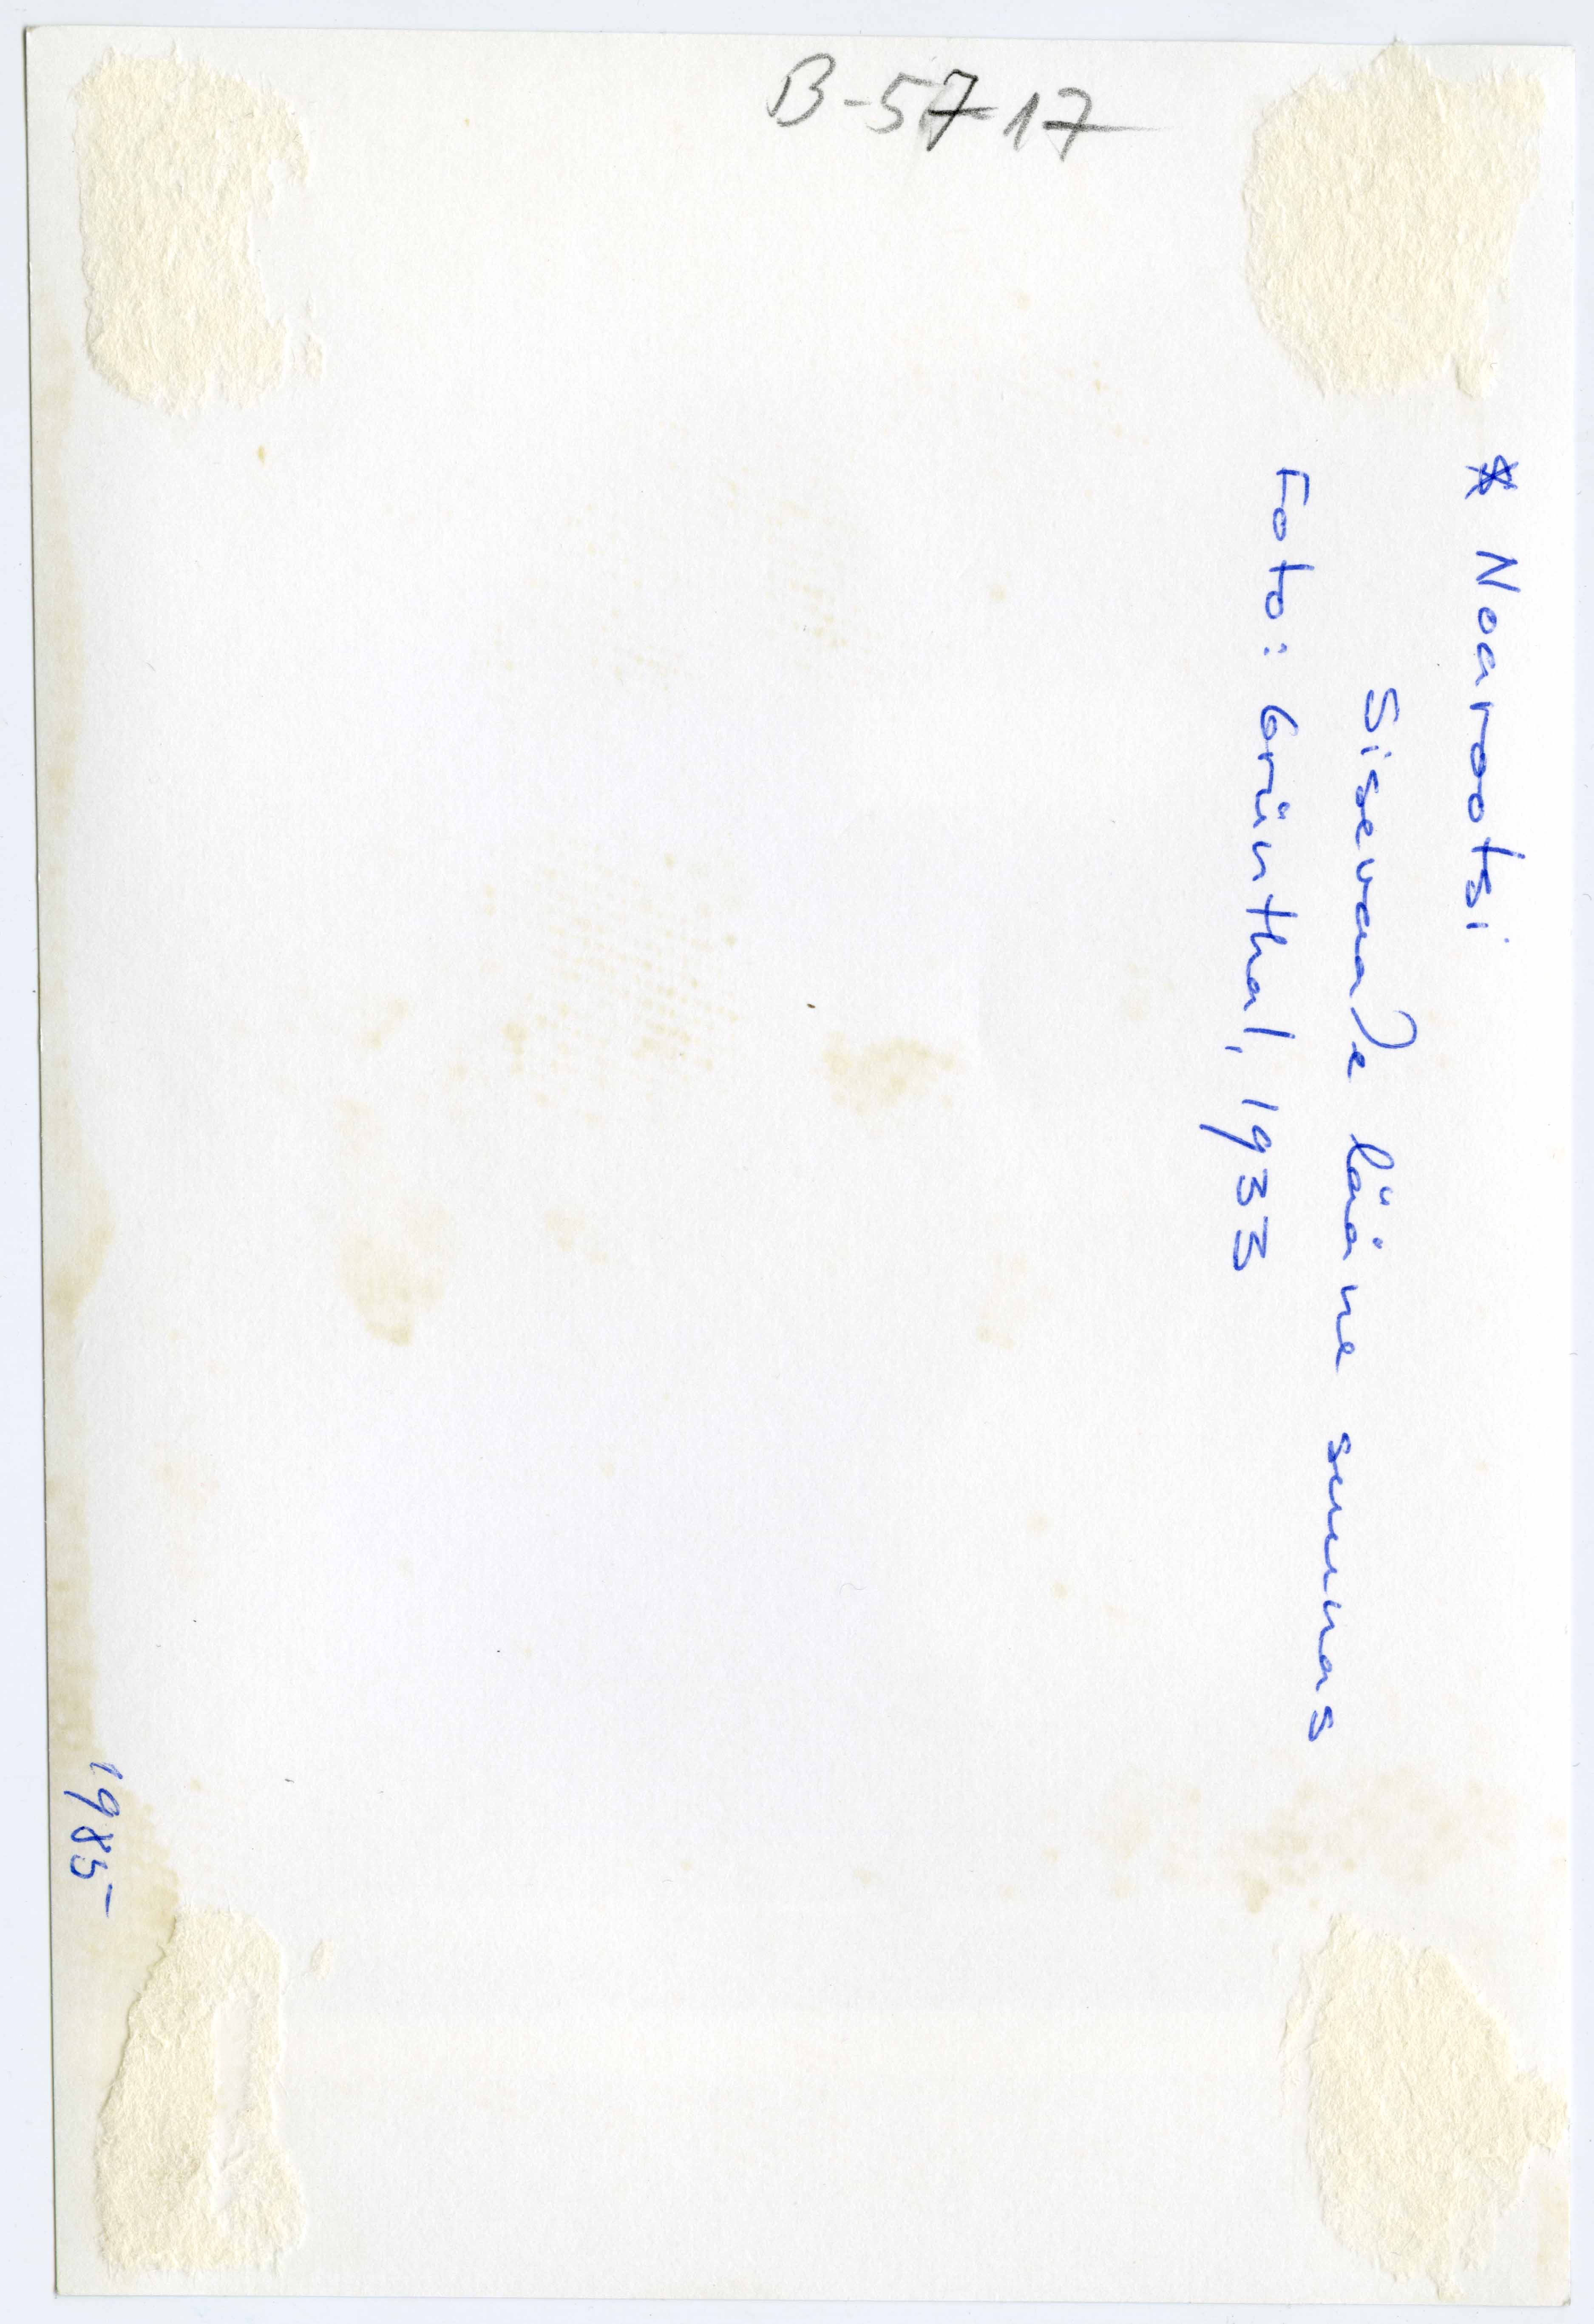 B-5717
* Noarootsi
Sisevaade lääne suunas
Foto: Grünthal, 1933
1985-